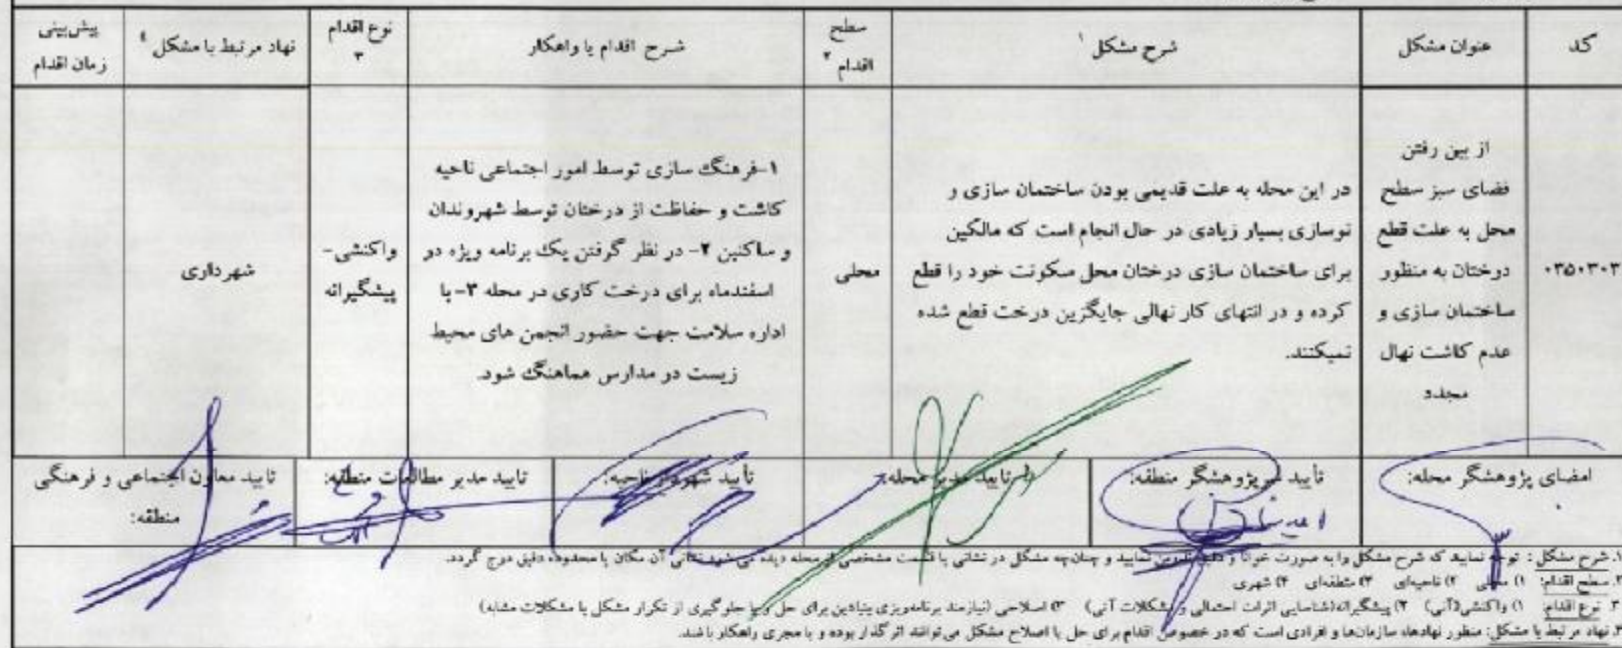 کد
عنوان مشکل
شرح مشکل ۱
سطح
اقدام ۲
شرح اقدام یا راهکار
نوع اقدام
۳
نهاد مرتبط با مشکل ۴
پیش‌بینی
زمان اقدام
۰۳۵۰۳۰۳
از بین رفتن
فضای سبز سطح
محل به علت قطع
درختان به منظور
ساختمان سازی و
عدم کاشت نهال
مجدد
در این محله به علت قدیمی بودن ساختمان سازی و
نوسازی بسیار زیادی در حال انجام است که مالکین
برای ساختمان سازی درختان محل سکونت خود را قطع
کرده و در انتهای کار نهالی جایگزین درخت قطع شده
نمیکنند.
محلی
۱-فرهنگ سازی توسط امور اجتماعی ناحیه
کاشت و حفاظت از درختان توسط شهروندان
و ساکنین ۲- در نظر گرفتن یک برنامه ویژه در
اسفندماه برای درخت کاری در محله ۳- با
اداره سلامت جهت حضور انجمن های محیط
زیست در مدارس هماهنگ شود.
واکنشی-
پیشگیرانه
شهرداری
امضای پژوهشگر محله:
تأیید سرپژوهشگر منطقه:
تایید مدیر محله:
تأیید شهردار ناحیه:
تایید مدیر مطالعات منطقه:
تایید معاون اجتماعی و فرهنگی
منطقه:
۱. شرح مشکل : توجه نمایید که شرح مشکل را به صورت خوانا و دقیق نمایید و چنان‌چه مشکل در نشانی یا قسمت مشخصی از محله دیده می شود نشانی آن مکان یا محدوده دقیق درج گردد.
۲. سطح اقدام: ۱) محلی ۲) ناحیه‌ای ۳) منطقه‌ای ۴) شهری
۳. نوع اقدام: ۱) واکنشی(آنی) ۲) پیشگیرانه(شناسایی اثرات احتمالی و مشکلات آتی) ۳) اصلاحی (نیازمند برنامه‌ریزی بنیادین برای حل و یا جلوگیری از تکرار مشکل یا مشکلات مشابه)
۴. نهاد مرتبط با مشکل: منظور نهادها، سازمان‌ها و افرادی است که در خصوص اقدام برای حل یا اصلاح مشکل می‌توانند اثرگذار بوده و یا مجری راهکار باشند.